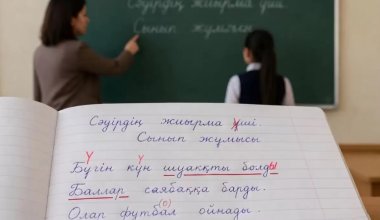 Сәуірдің жиырма үші.
Сынып жұмысы
Сәуірдің жиырма үші.
Сынып жұмысы
Бүгін күн шуақты болды
Баллар саябаққа барды.
Олар футбол ойнады.